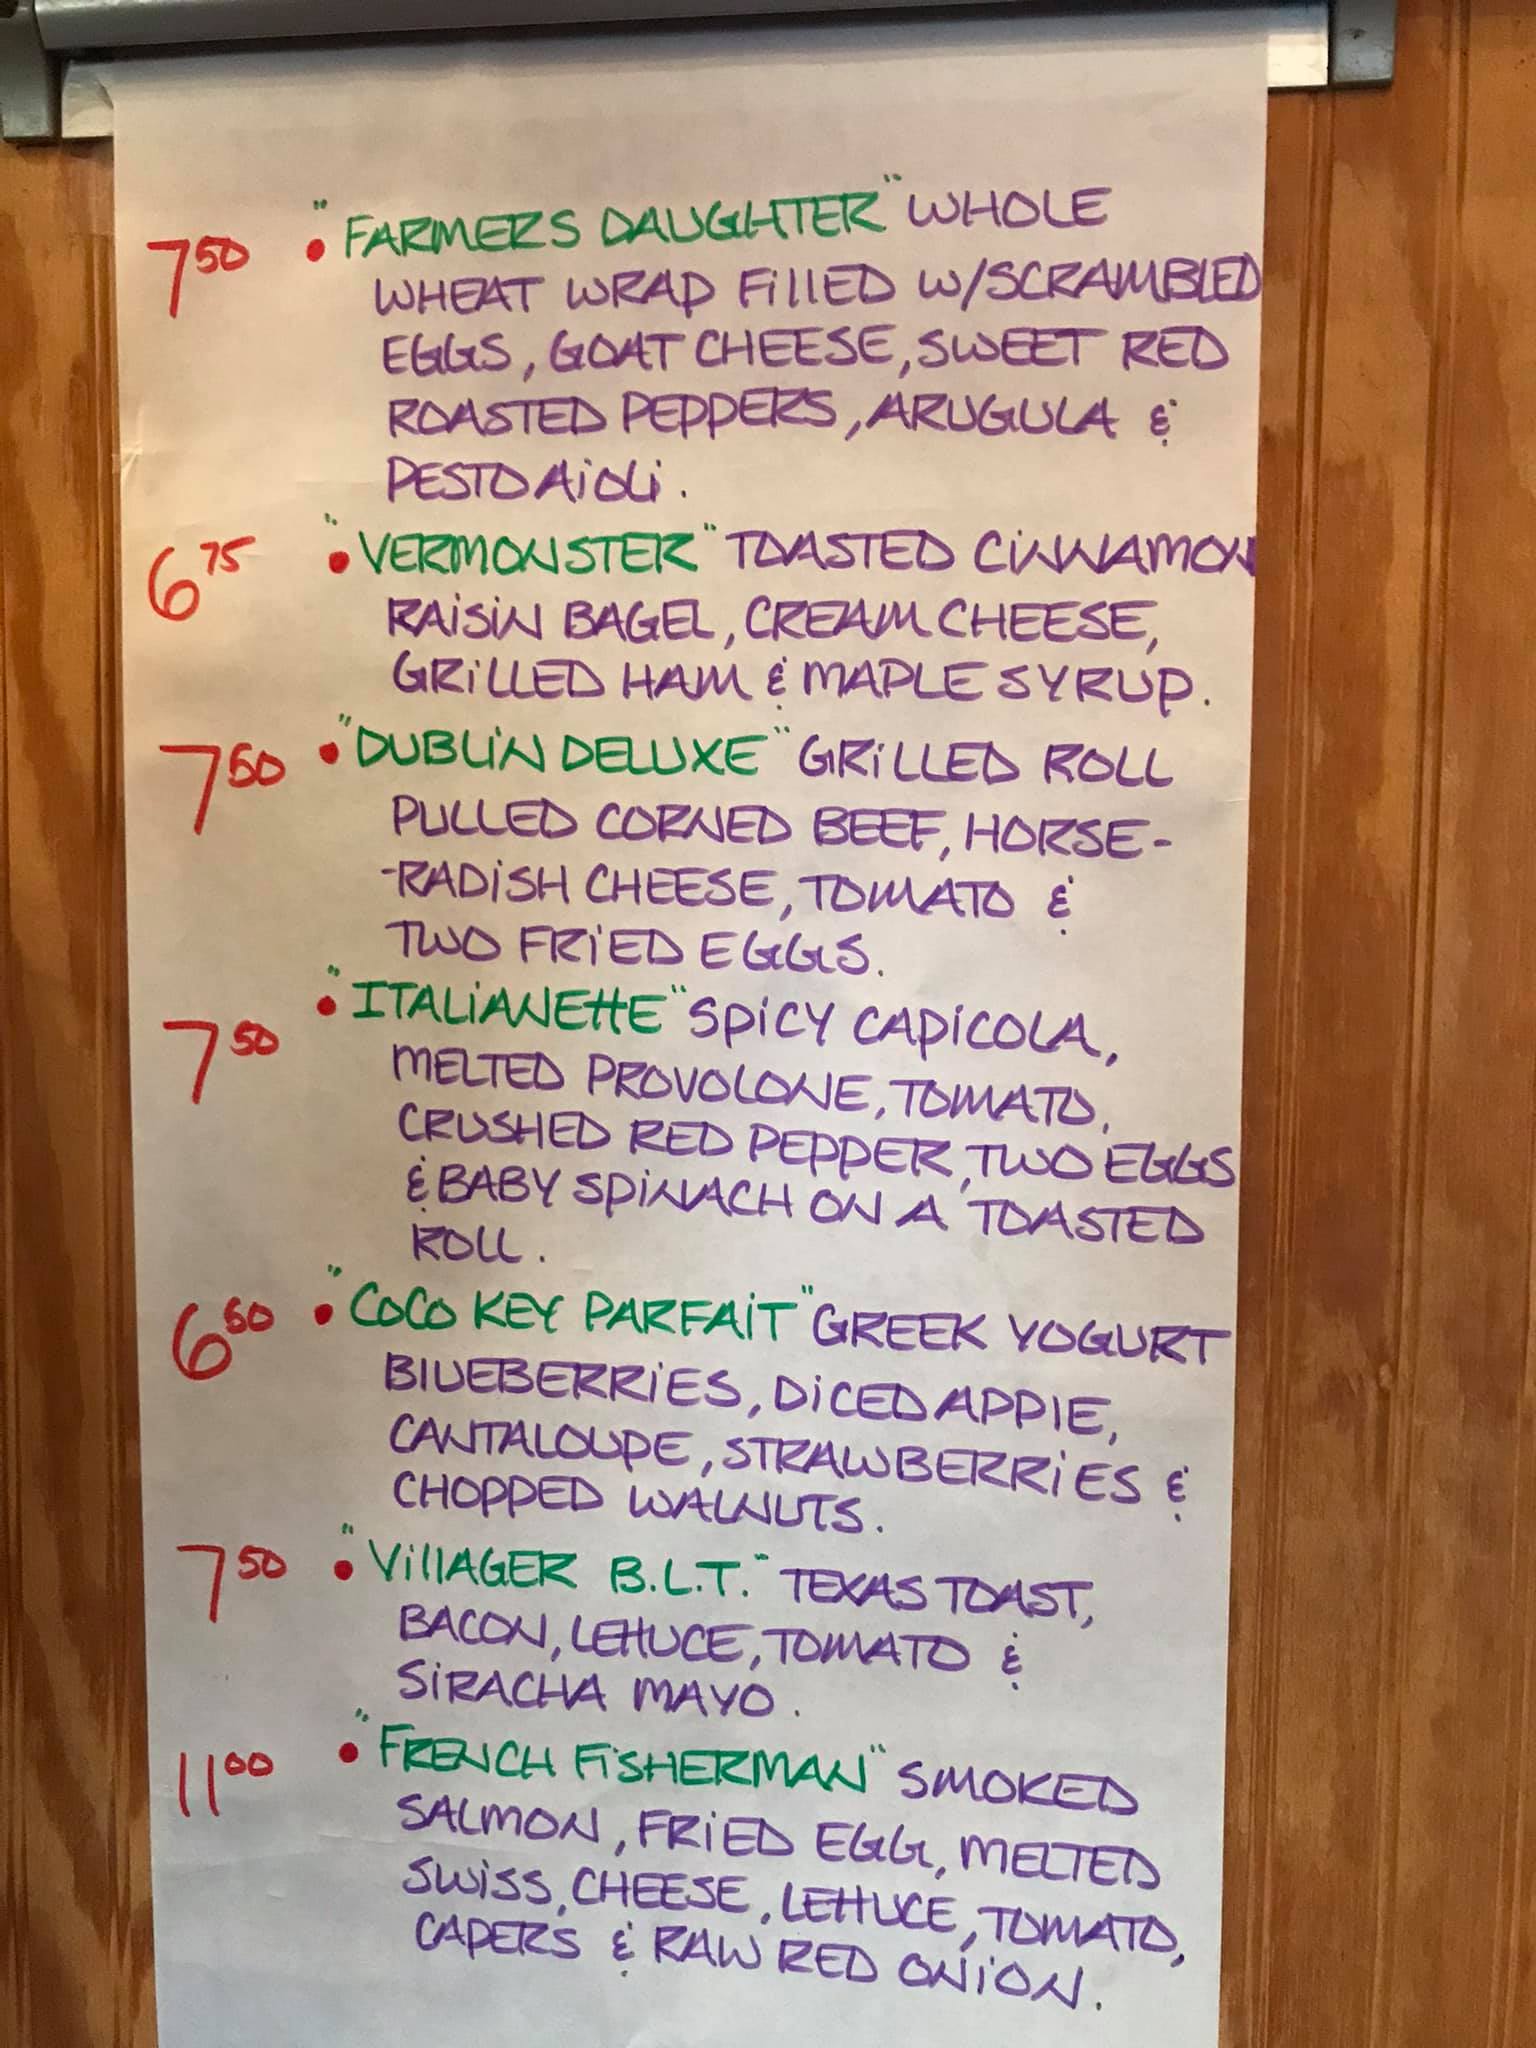 7.50 • "FARMERS DAUGHTER" WHOLE
WHEAT WRAP FILLED W/SCRAMBLED
EGGS, GOAT CHEESE, SWEET RED
ROASTED PEPPERS, ARUGULA &
PESTO AIOLI.
6.75 • "VERMONSTER" TOASTED CINNAMON
RAISIN BAGEL, CREAM CHEESE,
GRILLED HAM & MAPLE SYRUP.
7.50 • "DUBLIN DELUXE" GRILLED ROLL
PULLED CORNED BEEF, HORSE-
-RADISH CHEESE, TOMATO &
TWO FRIED EGGS.
7.50 • "ITALIANETTE" SPICY CAPICOLA,
MELTED PROVOLONE, TOMATO,
CRUSHED RED PEPPER, TWO EGGS
& BABY SPINACH ON A TOASTED
ROLL.
6.50 • "COCO KEY PARFAIT" GREEK YOGURT
BLUEBERRIES, DICED APPLE,
CANTALOUPE, STRAWBERRIES &
CHOPPED WALNUTS.
7.50 • "VILLAGER B.L.T." TEXAS TOAST,
BACON, LETTUCE, TOMATO &
SIRACHA MAYO.
11.00 • "FRENCH FISHERMAN" SMOKED
SALMON, FRIED EGG, MELTED
SWISS, CHEESE, LETTUCE, TOMATO,
CAPERS & RAW RED ONION.